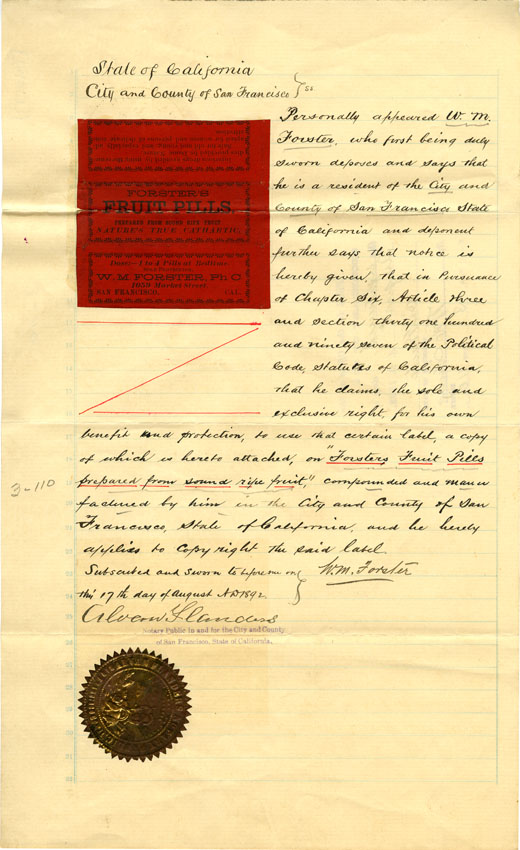 State of California
City and County of San Francisco } ss
Personally appeared W. M.
Forster, who first being duly
sworn deposes and says that
he is a resident of the City and
County of San Francisco State
of California and deponent
further says that notice is
hereby given, that in Pursuance
of Chapter Six, Article three
and section thirty one hundred
and ninety seven of the Political
Code, Statutes of California,
that he claims, the sole and
exclusive right, for his own
benefit and protection, to use that certain label, a copy
of which is hereto attached, on "Forsters Fruit Pills
prepared from sound ripe fruit," compounded and manu
factured by him in the City and County of San
Francisco, State of California, and he hereby
applies to Copyright the said label
Subscribed and sworn to before me on
this 17th day of August AD 1892 }
W. M. Forster
Alvan Flanders
Notary Public In and for the City and County
of San Francisco, State of California.
3-110
FORSTER'S
FRUIT PILLS.
PREPARED FROM SOUND RIPE FRUIT
NATURE'S TRUE CATHARTIC.
Dose:—1 to 4 Pills at Bedtime
W. M FORSTER, Ph C
1059 Market Street,
SAN FRANCISCO, CAL.